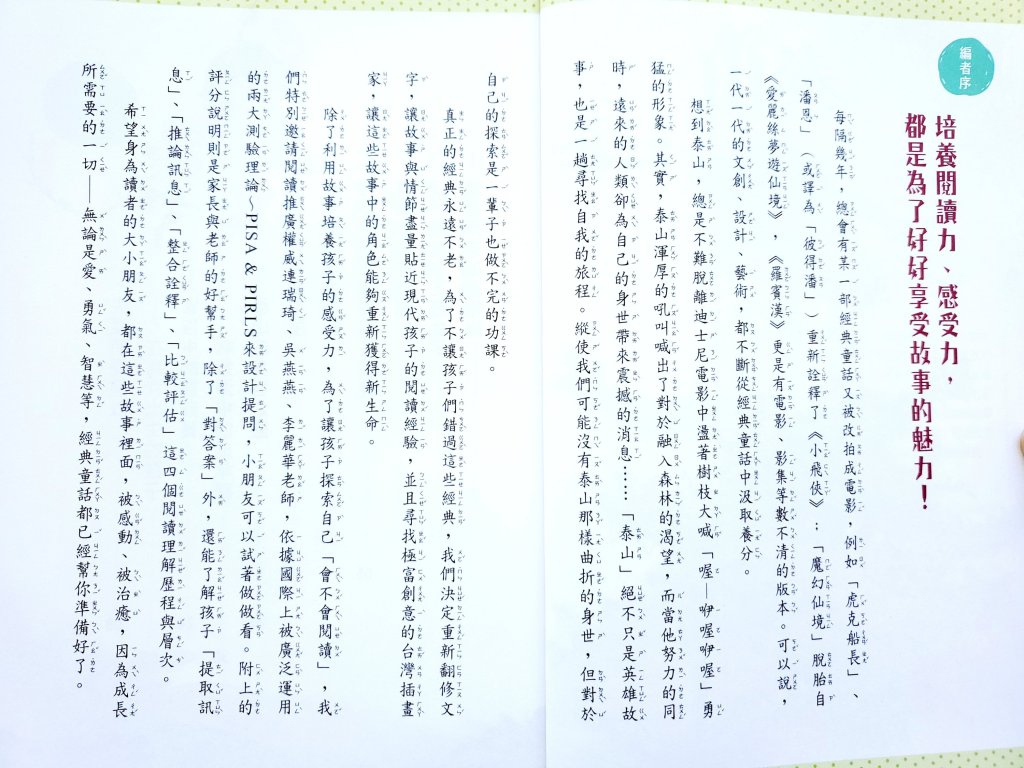 編者序
培養閱讀力、感受力，
都是為了好好享受故事的魅力！
每隔幾年，總會有某一部經典童話又被改拍成電影，例如「虎克船長」、
「潘恩」（或譯為「彼得潘」）重新詮釋了《小飛俠》；「魔幻仙境」脫胎自
《愛麗絲夢遊仙境》，《羅賓漢》更是有電影、影集等數不清的版本。可以說，
一代一代的文創、設計、藝術，都不斷從經典童話中汲取養分。
想到泰山，總是不難脫離迪士尼電影中盪著樹枝大喊「喔—咿喔咿喔」勇
猛的形象。其實，泰山渾厚的吼叫喊出了對於融入森林的渴望，而當他努力的同
時，遠來的人類卻為自己的身世帶來震撼的消息……「泰山」絕不只是英雄故
事，也是一趟尋找自我的旅程。縱使我們可能沒有泰山那樣曲折的身世，但對於
自己的探索是一輩子也做不完的功課。
真正的經典永遠不老，為了不讓孩子們錯過這些經典，我們決定重新翻修文
字，讓故事與情節盡量貼近現代孩子的閱讀經驗，並且尋找極富創意的台灣插畫
家，讓這些故事中的角色能夠重新獲得新生命。
除了利用故事培養孩子的感受力，為了讓孩子探索自己「會不會閱讀」，我
們特別邀請閱讀推廣權威連瑞琦、吳燕燕、李麗華老師，依據國際上被廣泛運用
的兩大測驗理論～PISA & PIRLS來設計提問，小朋友可以試著做做看。附上的
評分說明則是家長與老師的好幫手，除了「對答案」外，還能了解孩子「提取訊
息」、「推論訊息」、「整合詮釋」、「比較評估」這四個閱讀理解歷程與層次。
希望身為讀者的大小朋友，都在這些故事裡面，被感動、被治癒，因為成長
所需要的一切——無論是愛、勇氣、智慧等，經典童話都已經幫你準備好了。